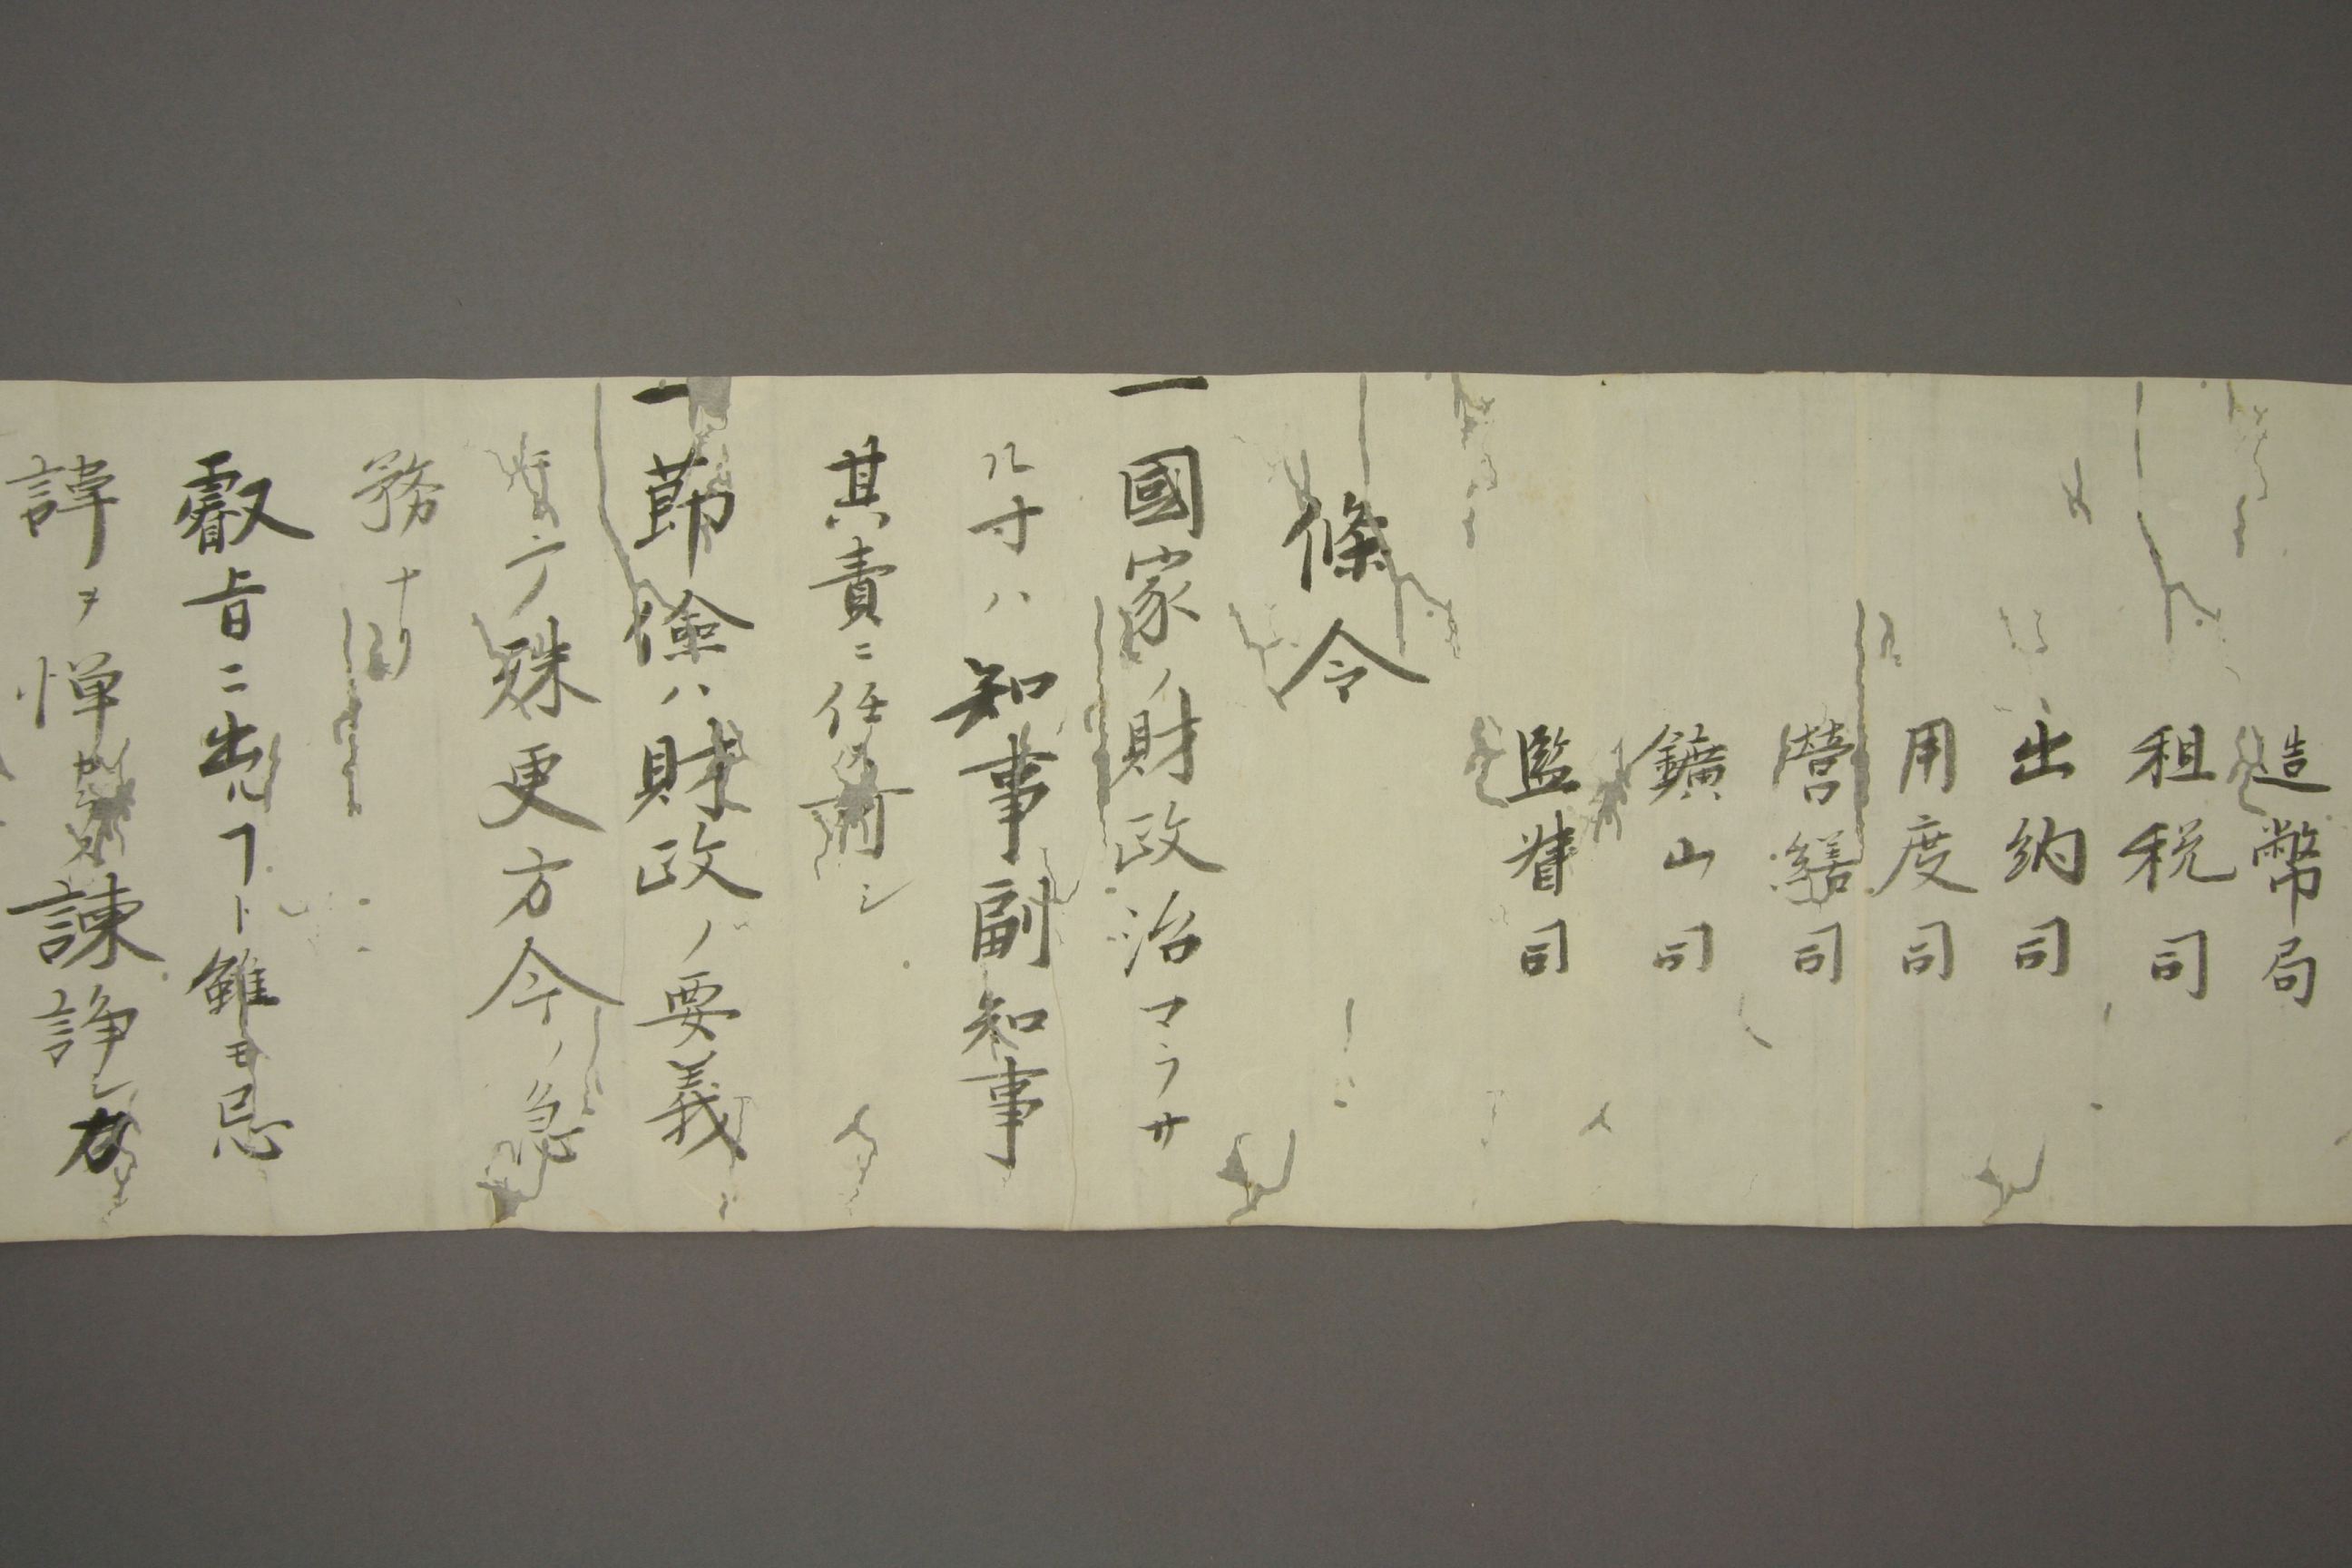 造幣局
租税司
出納司
用度司
營繕司
鑛山司
監督司
條令
一國家ノ財政治マラサ
ル寸ハ知事副知事
其責ニ任可シ
一莭儉ハ財政ノ要義ニ
テ殊更方今ノ急
務ナリ
叡旨ニ出ルフト雖モ忌
諱ヲ憚カラス諫諍シ